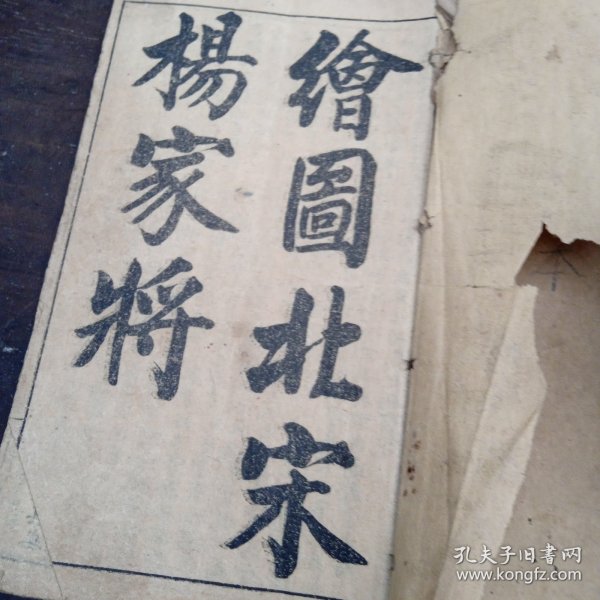 繪圖北宋
楊家將
本
孔夫子旧書网
www.kongfz.com